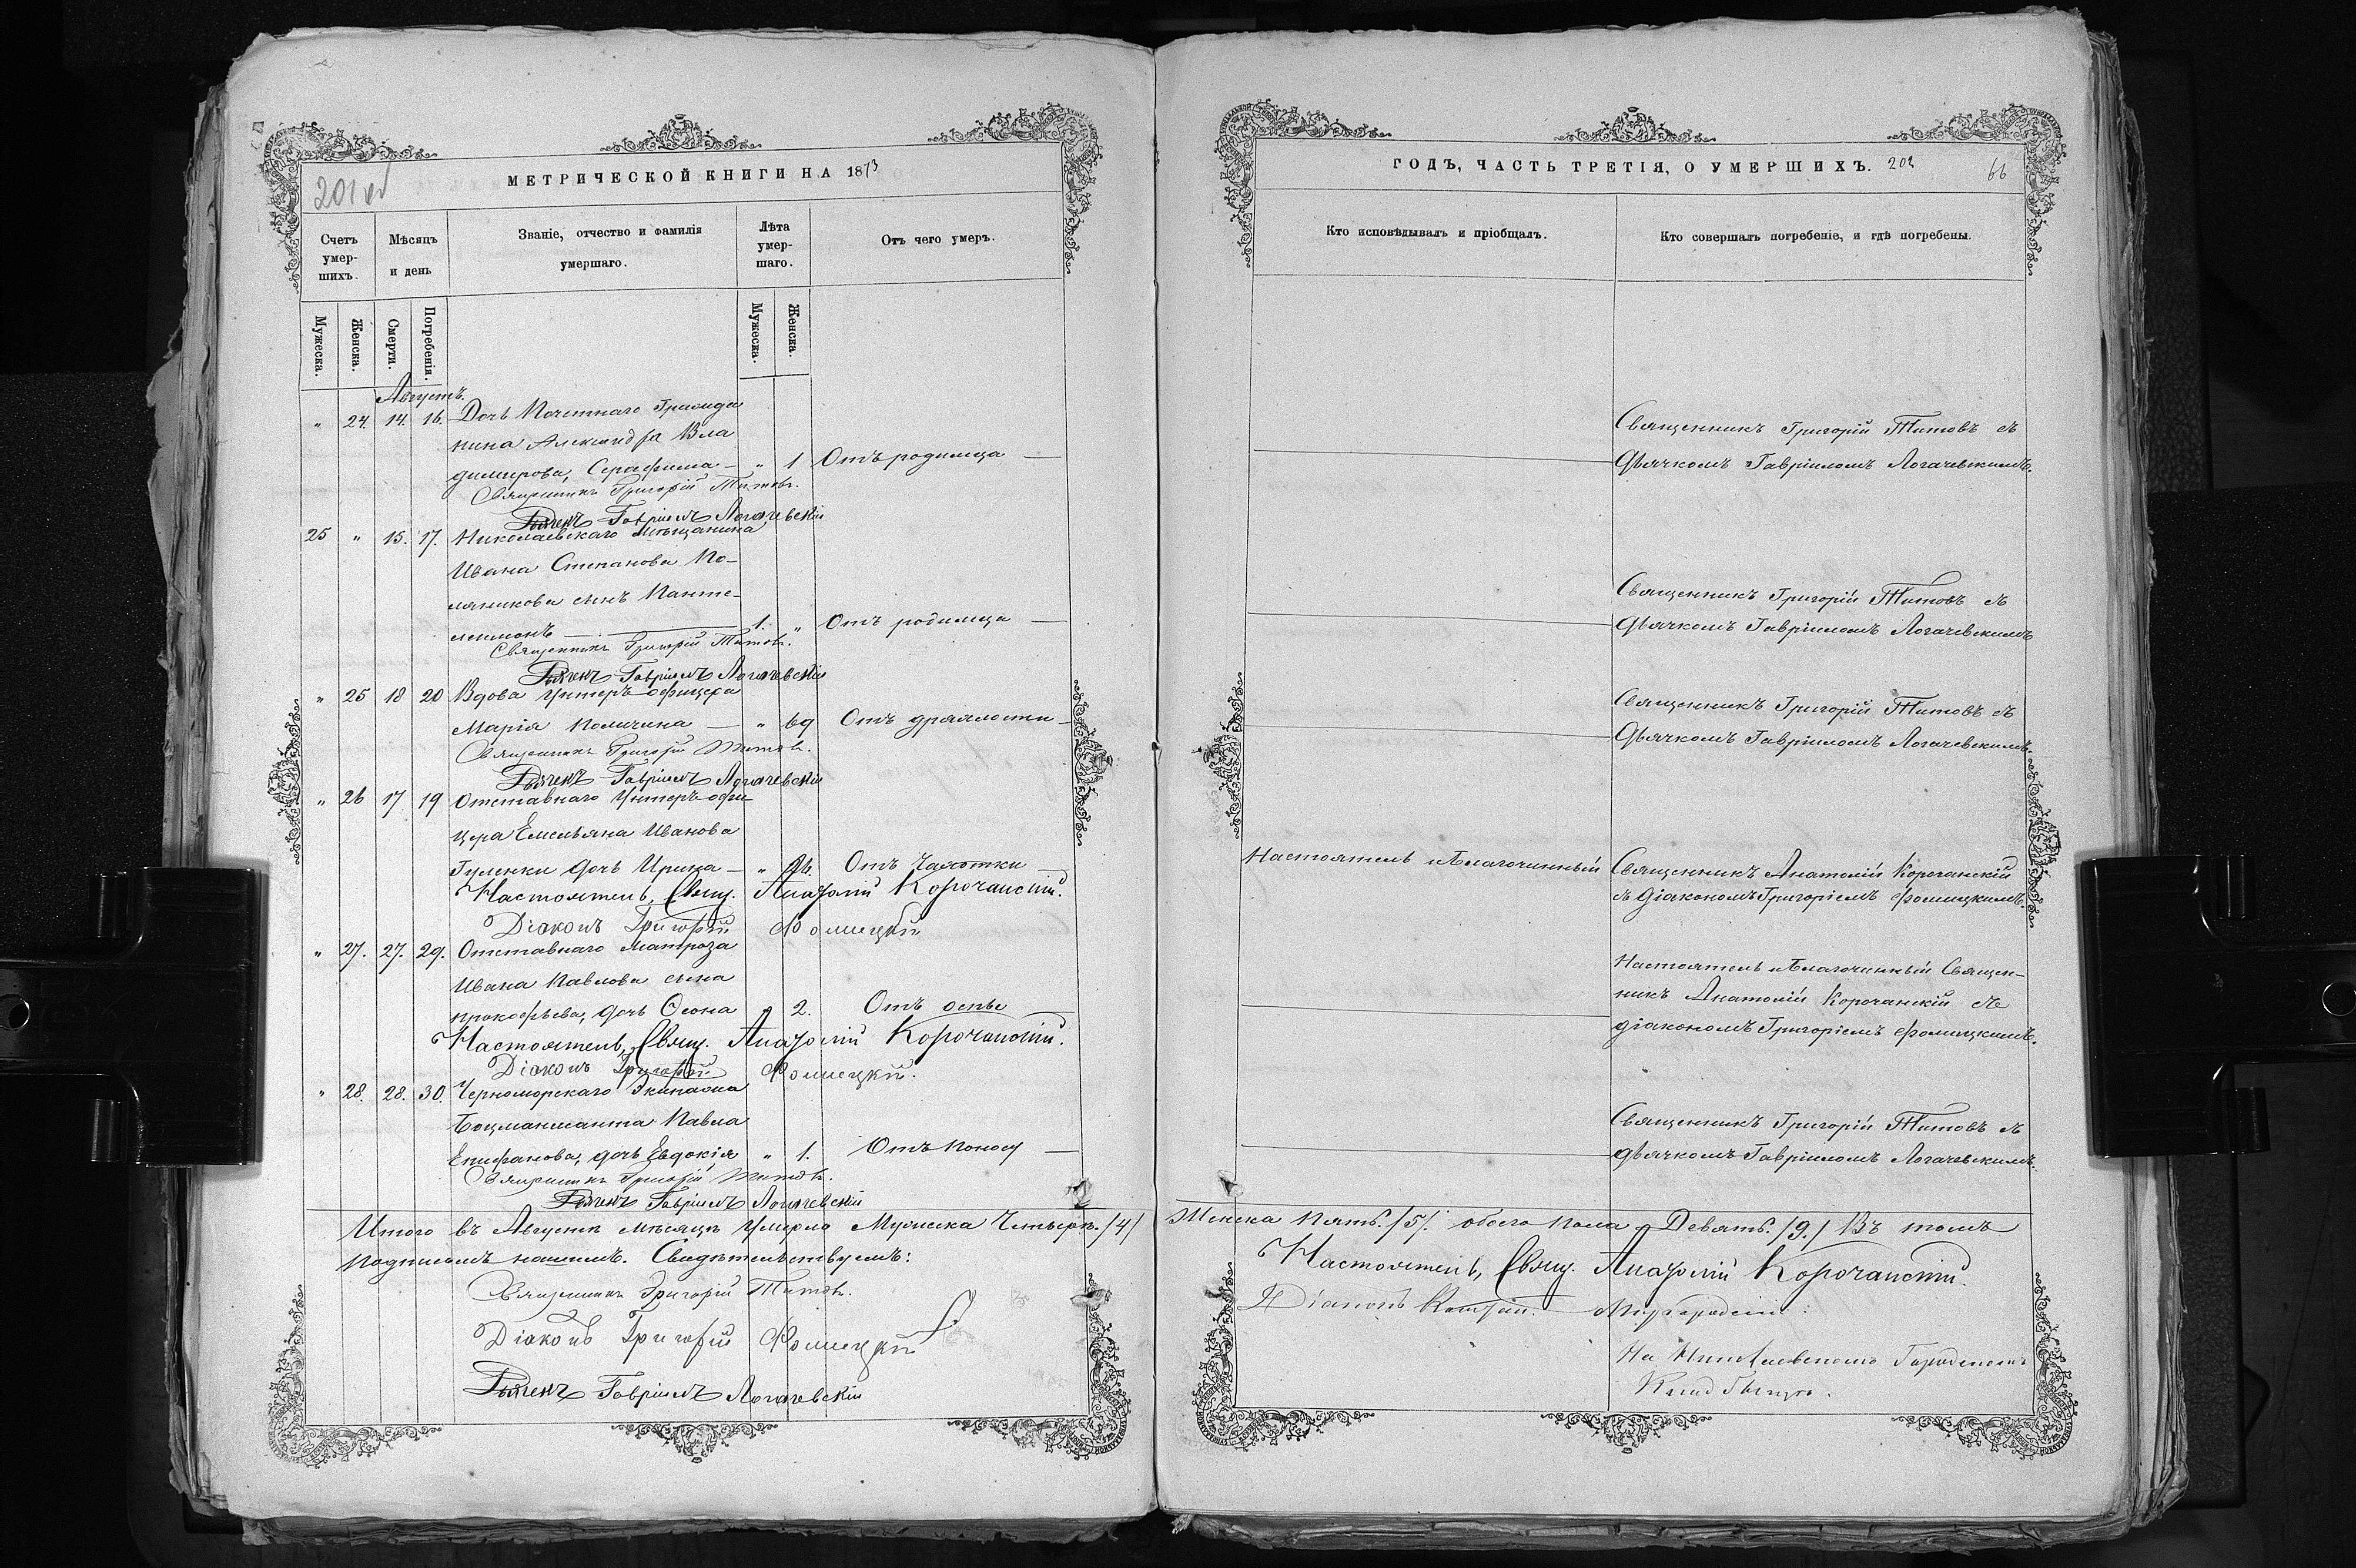 МЕТРИЧЕСКОЙ КНИГИ НА 1873
201 об
Счетъ умершихъ.
Мѣсяцъ и день
Званіе, отчество и фамилія умершаго.
Лѣта умершаго.
Отъ чего умеръ.
Мужеска.
Женска.
Смерти.
Погребенія.
Мужеска.
Женска.
Августъ.
" 24. 14. 16. Дочь Почетнаго Гражда
нина Александра Вла
димирова, Серафима — " 1 Отъ родимца —
Священникъ Григорій Титовъ.
Дьячекъ Гавріилъ Логачевскій
25 " 15. 17. Николаевскаго Мѣщанина
Ивана Степанова По-
ляникова сынъ Панте-
леимонъ — 1. " Отъ родимца —
Священникъ Григорій Титовъ.
Дьячекъ Гавріилъ Логачевскій
" 25 18 20 Вдова Унтеръ-офицера
Марія — " 69 Отъ дряхлости —
Священникъ Григорій Титовъ.
Дьячекъ Гавріилъ Логачевскій
" 26 17 19 Отставнаго Унтеръ-офи
цера Емельяна Иванова
Гуленки дочь Ирина — " 26. Отъ Чахотки —
Настоятель, Свящ. Анатолій Корочанскій.
Діаконъ Григорій Фомицкій
" 27. 27. 29. Отставнаго Матроза
Ивана Павлова сына
Прокофьева, дочь Ѳеона " 2. Отъ оспы
Настоятель, Свящ. Анатолій Корочанскій.
Діаконъ Григорій Фомицкій.
" 28. 28. 30. Черноморскаго Экипажа
Боцманманта Павла
Епифанова, дочь Евдокія " 1. Отъ поносу —
Священникъ Григорій Титовъ.
Дьячекъ Гавріилъ Логачевскій
Итого въ Августѣ мѣсяцѣ Умерло Мужеска Четыре. /4/
подписомъ нашимъ. Свидѣтельствуемъ:
Священникъ Григорій Титовъ.
Діаконъ Григорій Фомицкій
Дьячекъ Гавріилъ Логачевскій
ГОДЪ, ЧАСТЬ ТРЕТІЯ, О УМЕРШИХЪ. 202
66
Кто исповѣдывалъ и пріобщалъ.
Кто совершалъ погребеніе, и гдѣ погребены.
Священникъ Григорій Титовъ съ
Дьячкомъ Гавріиломъ Логачевскимъ.
Священникъ Григорій Титовъ съ
Дьячкомъ Гавріиломъ Логачевскимъ
Священникъ Григорій Титовъ съ
Дьячкомъ Гавріиломъ Логачевскимъ.
Настоятель и Благочинный Священникъ Анатолій Корочанскій
съ діакономъ Григоріемъ Фомицкимъ.
Настоятель и Благочинный Священ-
никъ Анатолій Корочанскій съ
діакономъ Григоріемъ Фомицкимъ.
Священникъ Григорій Титовъ съ
дьячкомъ Гавріиломъ Логачевскимъ.
Женска Пять. /5/. обоего пола Девять. /9./ Въ томъ
Настоятель, Свящ. Анатолій Корочанскій.
Діаконъ
На Николаевскомъ Городскомъ
Кладбищѣ.